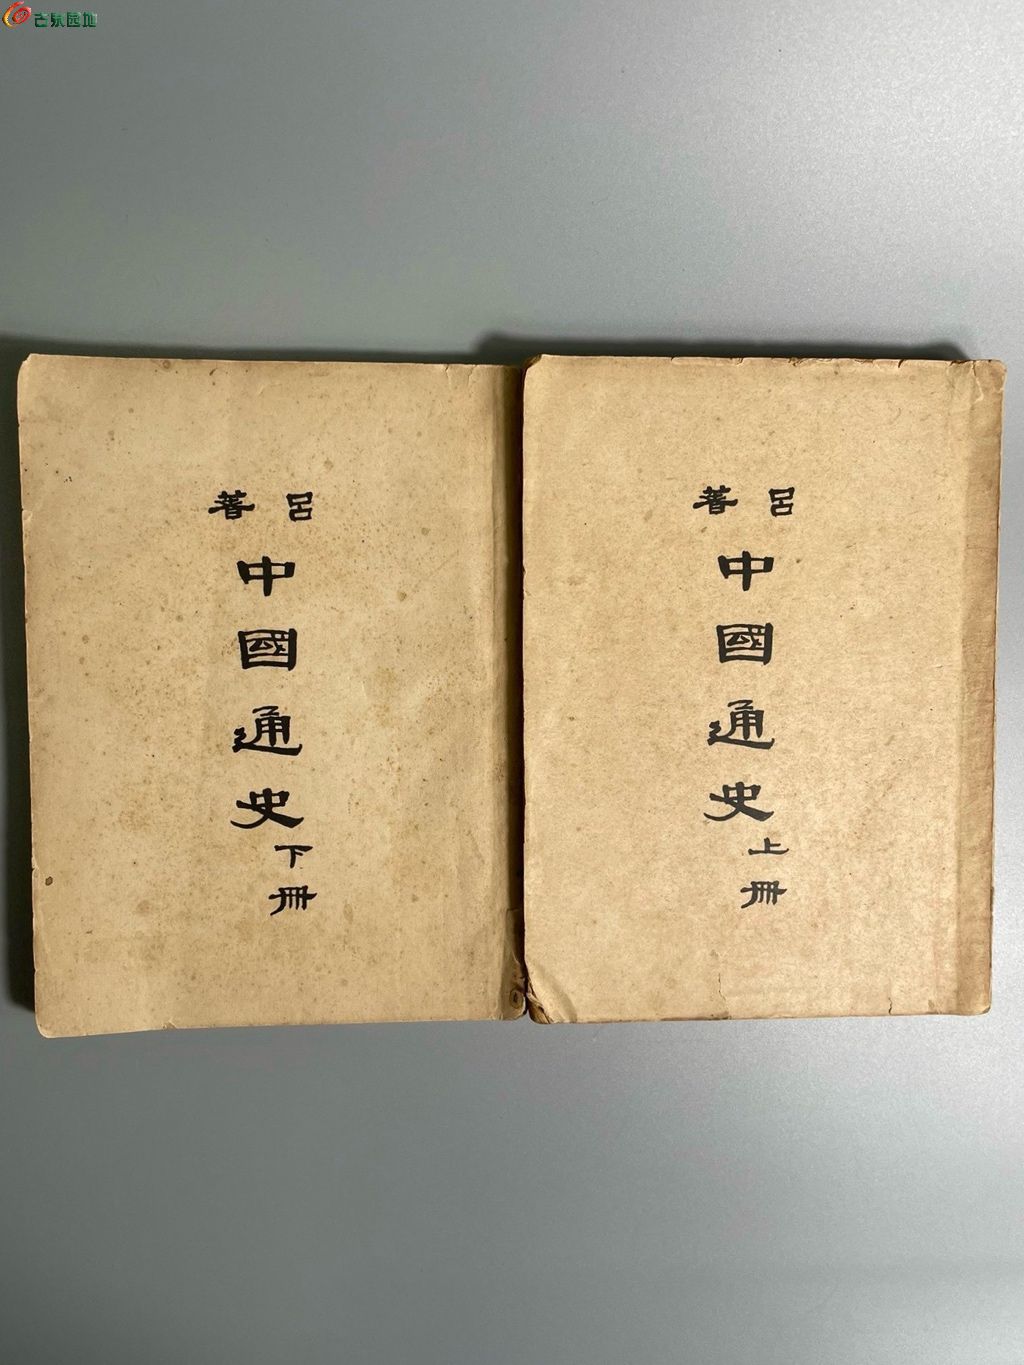 古泉园地
呂著
中國通史
上冊
呂著
中國通史
下冊